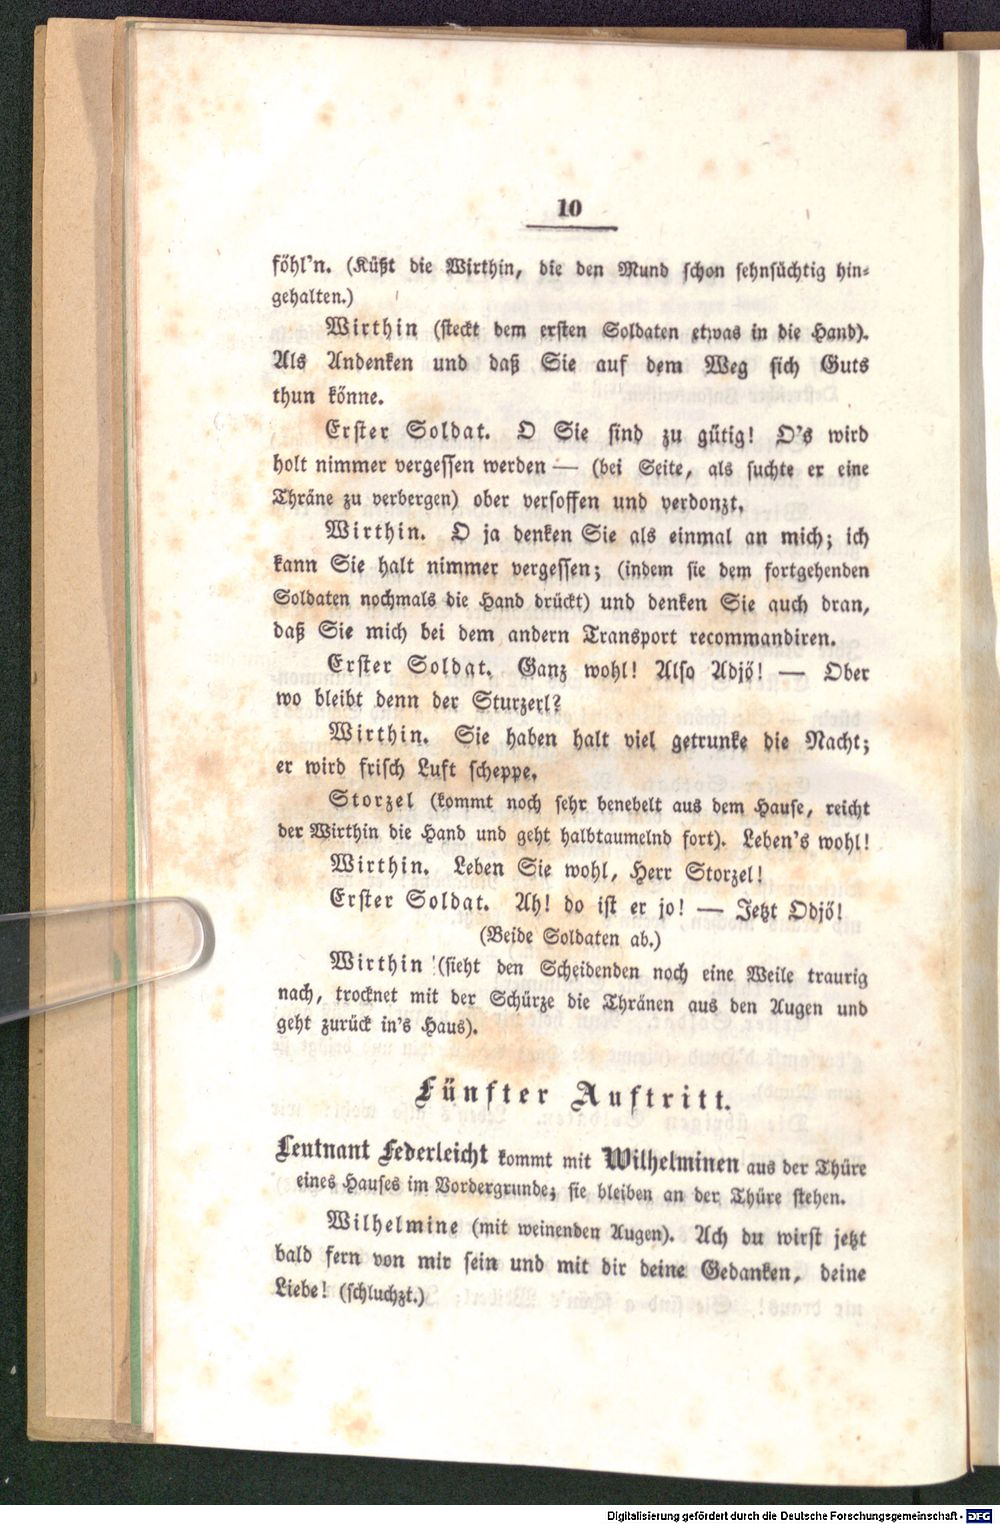 10
föhl'n. (Küßt die Wirthin, die den Mund schon sehnsüchtig hin-
gehalten.)
Wirthin (steckt dem ersten Soldaten etwas in die Hand).
Als Andenken und daß Sie auf dem Weg sich Guts
thun könne.
Erster Soldat. O Sie sind zu gütig! O's wird
holt nimmer vergessen werden — (bei Seite, als suchte er eine
Thräne zu verbergen) ober versoffen und verdonzt.
Wirthin. O ja denken Sie als einmal an mich; ich
kann Sie halt nimmer vergessen; (indem sie dem fortgehenden
Soldaten nochmals die Hand drückt) und denken Sie auch dran,
daß Sie mich bei dem andern Transport recommandiren.
Erster Soldat. Ganz wohl! Also Adjö! — Ober
wo bleibt denn der Sturzerl?
Wirthin. Sie haben halt viel getrunke die Nacht;
er wird frisch Luft scheppe.
Storzel (kommt noch sehr benebelt aus dem Hause, reicht
der Wirthin die Hand und geht halbtaumelnd fort). Leben's wohl!
Wirthin. Leben Sie wohl, Herr Storzel!
Erster Soldat. Ah! do ist er jo! — Jetzt Odjö!
(Beide Soldaten ab.)
Wirthin (sieht den Scheidenden noch eine Weile traurig
nach, trocknet mit der Schürze die Thränen aus den Augen und
geht zurück in's Haus).
Fünfter Auftritt.
Leutnant Federleicht kommt mit Wilhelminen aus der Thüre
eines Hauses im Vordergrunde; sie bleiben an der Thüre stehen.
Wilhelmine (mit weinenden Augen). Ach du wirst jetzt
bald fern von mir sein und mit dir deine Gedanken, deine
Liebe! (schluchzt.)
Digitalisierung gefördert durch die Deutsche Forschungsgemeinschaft - DFG